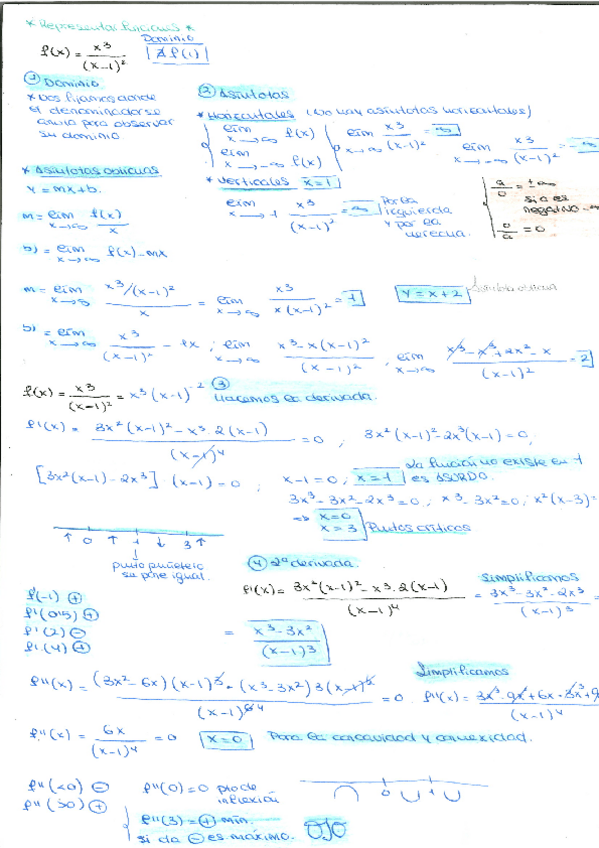 * Representar funciones *
f(x) = x³/(x-1)²
Dominio
∄ f(1)
① Dominio
* Nos fijamos donde
el denominador se
anula para observar
su dominio
② Asíntotas
* Horizontales (No hay asíntotas horizontales)
lím x→∞ f(x)
lím x→-∞ f(x)
lím x→∞ x³/(x-1)² = ∞
lím x→-∞ x³/(x-1)² = -∞
* Verticales x=1
lím x→1 x³/(x-1)² = ∞
Por la
izquierda
y por la
derecha.
a/0 = ±∞
si a es
negativo
0/a = 0
* Asíntotas oblicuas
y = mx+b.
m = lím x→∞ f(x)/x
b) = lím x→∞ f(x)-mx
m = lím x→∞ (x³/(x-1)²)/x = lím x→∞ x³/(x(x-1)²) = 1
y = x+2
Asíntota oblicua
b) = lím x→∞ x³/(x-1)² - 1x ; lím x→∞ (x³-x(x-1)²)/(x-1)² ; lím x→∞ (x³-x³+2x²-x)/(x-1)² = 2
f(x) = x³/(x-1)² = x³(x-1)⁻²
③ Hacemos la derivada.
f'(x) = (3x²(x-1)²-x³ 2(x-1))/(x-1)⁴ = 0 ; 3x²(x-1)²-2x³(x-1)=0,
[3x²(x-1)-2x³] (x-1)=0 ; x-1=0 ; x=1
La función no existe en 1
es ABSURDO.
3x³-3x²-2x³=0 ; x³-3x²=0 ; x²(x-3)=
⇒ x=0
x=3
Puntos críticos
↑ 0 ↑ 1 ↓ 3 ↑
punto puñetero
se pone igual.
f'(-1) ⊕
f'(0'5) ⊕
f'(2) ⊖
f'(4) ⊕
④ 2ª derivada.
f'(x) = (3x²(x-1)²-x³·2(x-1))/(x-1)⁴
Simplificamos
= (3x³-3x²-2x³)/(x-1)³ =
= (x³-3x²)/(x-1)³
f''(x) = ((3x²-6x)(x-1)³-(x³-3x²)3(x-1)²)/(x-1)⁶ ⁴ = 0
Simplificamos
f''(x) = (3x³-9x²+6x-3x³+9/(x-1)⁴
f''(x) = 6x/(x-1)⁴ = 0 x=0 Para la concavidad y convexidad.
f''(<0) ⊖
f''(>0) ⊕
f''(0)=0 pto de
inflexión
f''(3) = ⊕ mín.
si da ⊖ es máximo. OJO
0 1